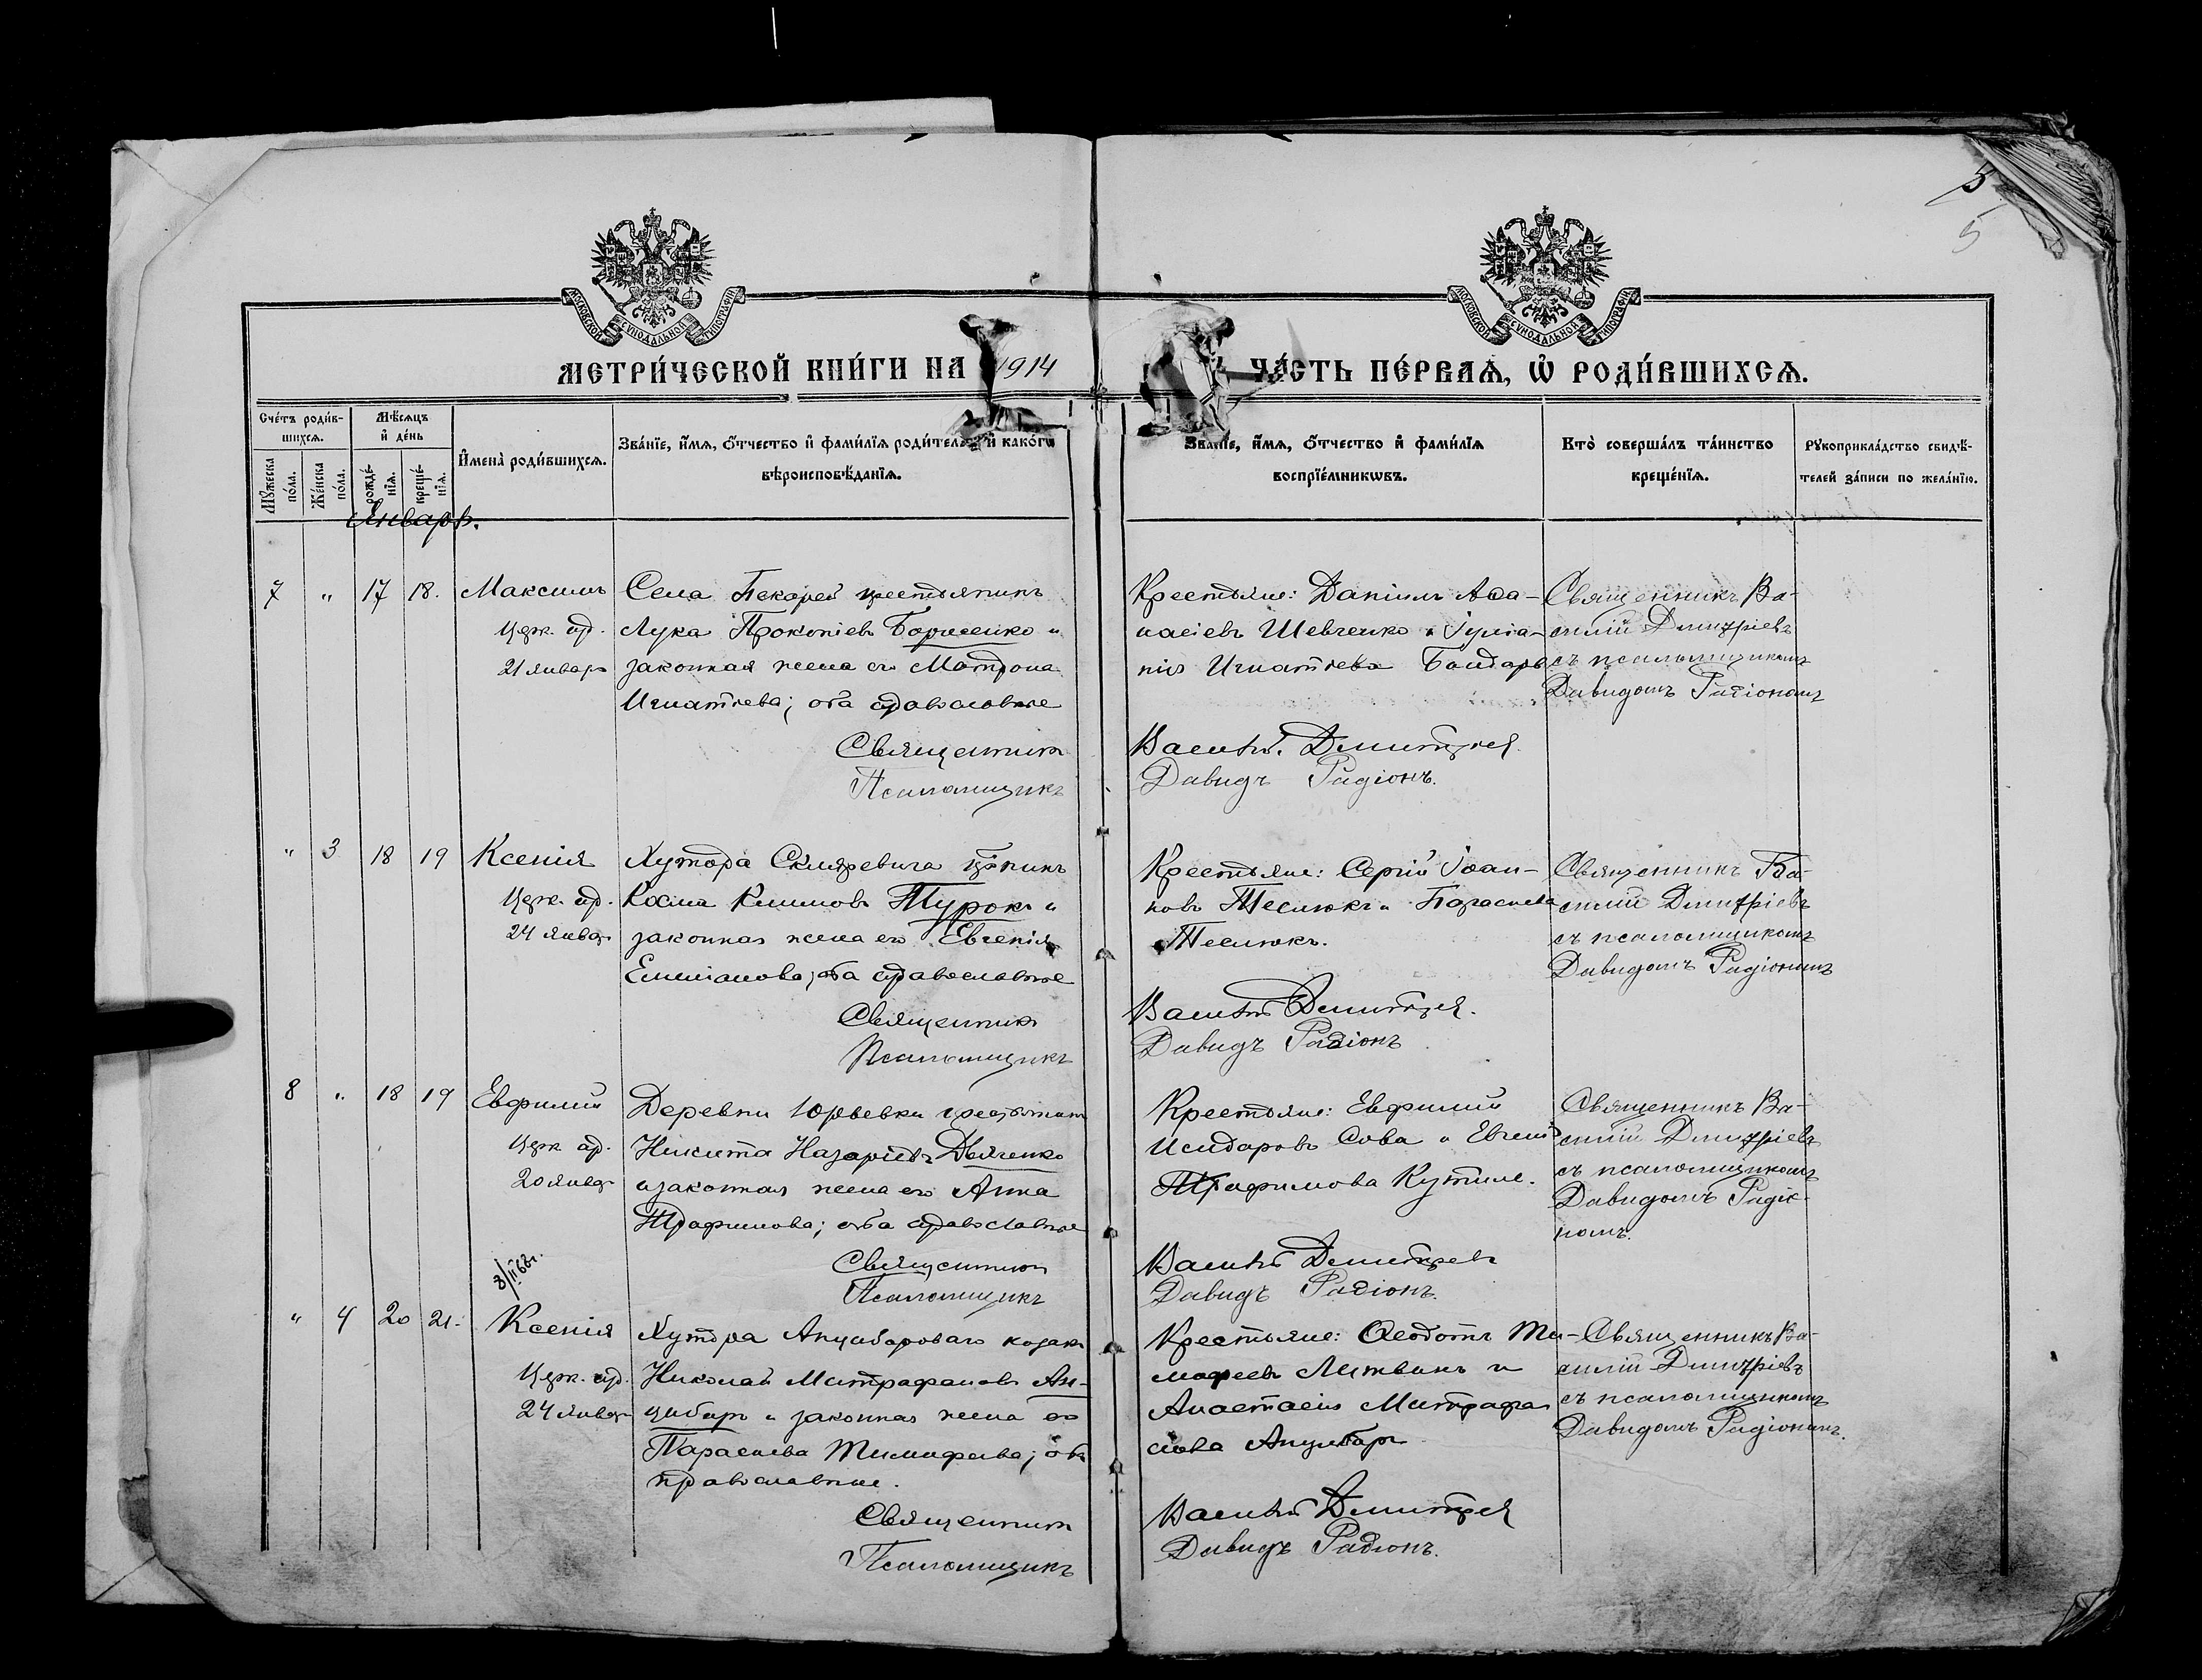 5
5
МОСКОВСКОЙ СУНОДАЛЬНОЙ ТИПОГРАФІИ
МОСКОВСКОЙ СУНОДАЛЬНОЙ ТИПОГРАФІИ
МЕТРИ́ЧЕСКОЙ КНИ́ГИ НА 1914
ЧА́СТЬ ПЕ́РВАѦ, Ѡ҆ РОДИ́ВШИХСѦ.
Сче́тъ роди́в-
шихсѧ.
Мѣ́сѧцъ
и҆ де́нь
Мꙋ́жеска
по́ла.
Же́нска
по́ла.
рожде́-
нїѧ.
креще́-
нїѧ.
И҆мена̀ роди́вшихсѧ.
Зва́нїе, и҆́мѧ, ѻ҆́тчество и҆ фами́лїѧ роди́телей, и҆ како́гѡ
вѣроисповѣ́данїѧ.
Зва́нїе, и҆́мѧ, ѻ҆́тчество и҆ фами́лїѧ
воспрїе́мникѡвъ.
Кто̀ соверша́лъ та́инство
креще́нїѧ.
Рꙋкоприкла́дство свидѣ́-
телей за́писи по жела́нїю.
Январь.
7 " 17 18. Максимъ
21 январ
Села Пекарей крестьянинъ
Лука Прокопіевъ Борисенко и
законная жена его Матрона
Игнатіева; оба православные
Священникъ
Псаломщикъ
Крестьяне: Даніилъ Аѳа-
насіевъ Шевченко и Іуліа-
нія Игнатіева Бондарь
Василій Димитріев
Давидъ Радіонъ.
Священникъ Ва-
силій Димитріевъ
съ псаломщикомъ
Давидомъ Радіономъ
" 3 18 19 Ксенія
24 январ
Хутора Скляревича
Косма Климовъ Турокъ и
законная жена его Евгенія
Емиліанова; оба православные
Священникъ
Псаломщикъ
Крестьяне: Сергій Іоан-
новъ Теслюкъ и Параскева
Теслюкъ.
Василій Димитріев.
Давидъ Радіонъ
Священникъ Ва-
силій Димитріевъ
съ псаломщикомъ
Давидомъ Радіономъ
8 " 18 19 Евфимій
20 январ
Деревни Юрьевки крестьянин
Никита Назаріевъ Дьяченко
и законная жена его Анна
Трофимова; оба православные
Священникъ
Псаломщикъ
Крестьяне: Евфимій
Исидоровъ Сова и Евгенія
Трофимова
Василій Димитріевъ
Давидъ Радіонъ.
Священникъ Ва-
силій Димитріевъ
съ псаломщикомъ
Давидомъ Радіо-
номъ.
" 4 20 21. Ксенія
24 январ
Хутора козакъ
Николай Митрофановъ Ан-
цибаръ и законная жена его
Параскева Тимофеева; оба
православные.
Священникъ
Псаломщикъ
Крестьяне: Ѳеодотъ Ти-
мофеевъ Литвинъ и
Анастасія Митрофа
нова Анцибаръ
Василій Димитріев
Давидъ Радіонъ.
Священникъ Ва-
силій Димитріевъ
съ псаломщикомъ
Давидомъ Радіономъ.